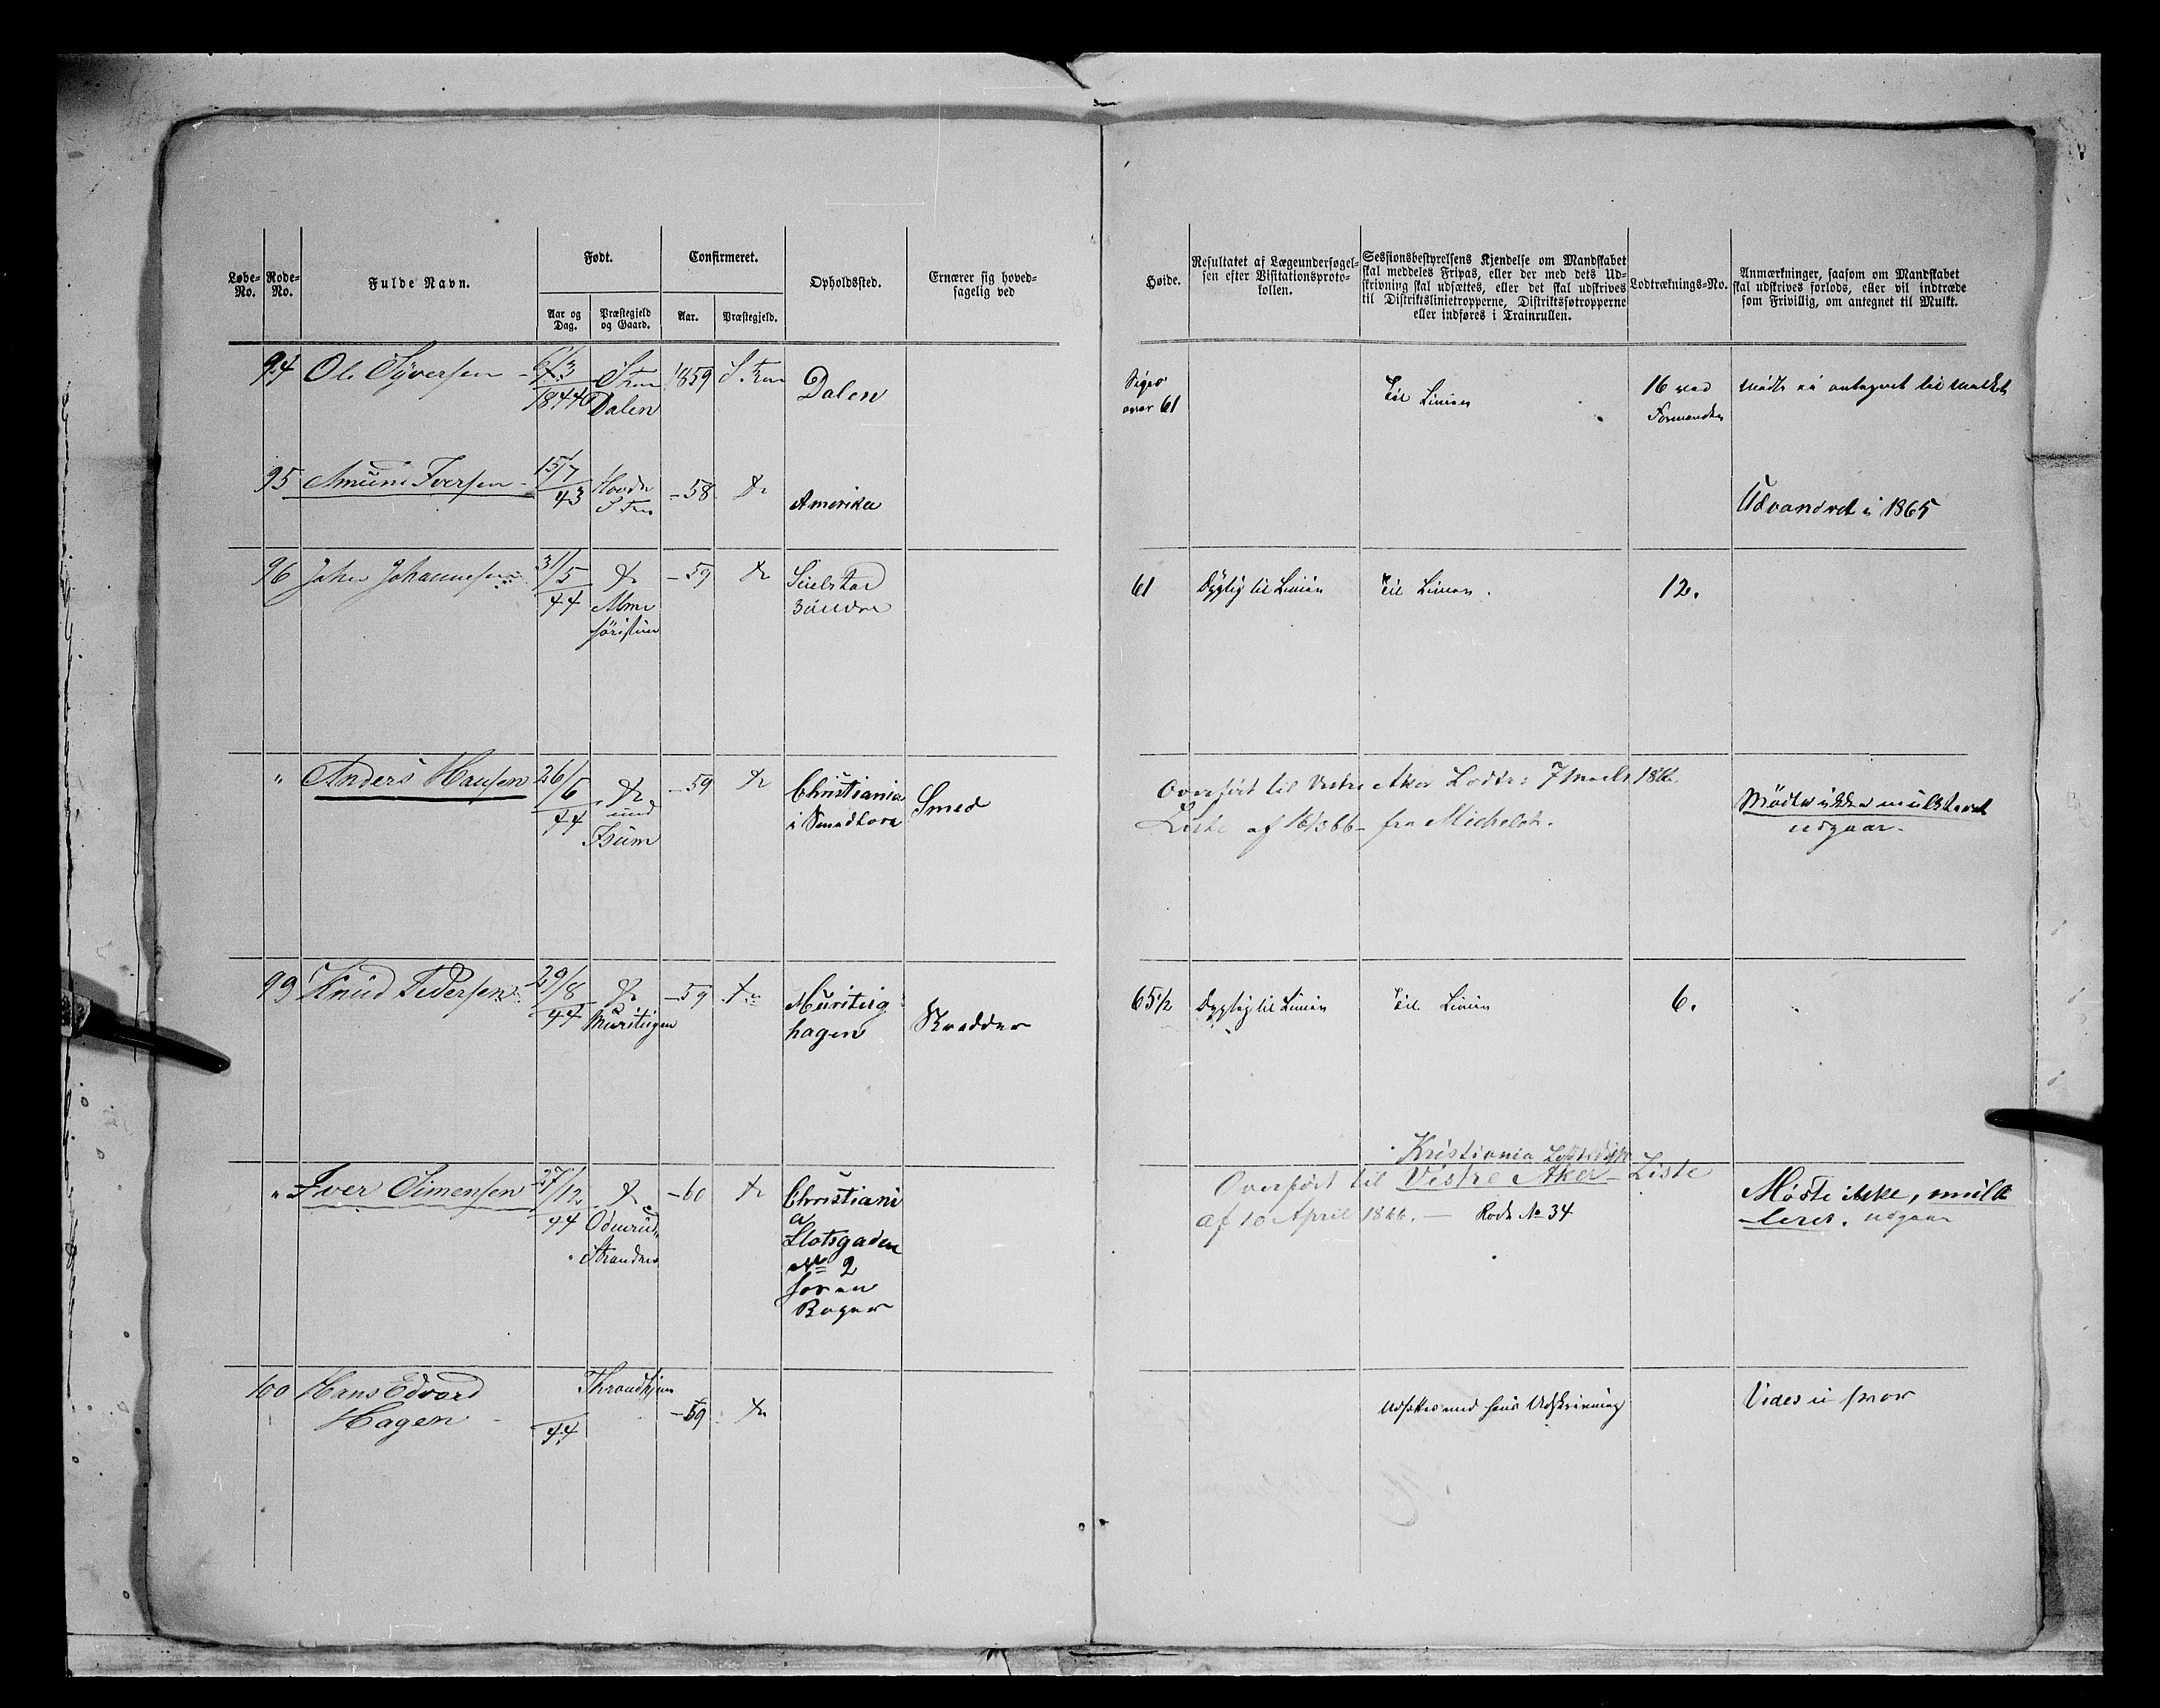 Løbe-No.
Rode-No.
Fulde Navn.
Født.
Aar og Dag.
Præstegjeld og Gaard.
Confirmeret.
Aar.
Præstegjeld.
Opholdssted.
Ernærer sig hoved-
sagelig ved
Høide.
Resultatet af Lægeundersøgel-
sen efter Visitationsproto-
kollen.
Sessionsbestyrelsens Kjendelse om Mandskabet
skal meddeles Fripas, eller der med dets Ud-
skrivning skal udsættes, eller det skal udskrives
til Distriktslinietropperne, Distriktsfotropperne
eller indføres i Trainrullen.
Lodtræknings-No.
Anmærkninger, saasom om Mandskabet
skal udskrives forlods, eller vil indtræde
som Frivillig, om antegnet til Mulkt.
94 Ole Syversen 6/3 1859 Dalen
1844 Dalen
Siges
over 61
Til Linien
16 ved
Formanden
Mødte ei antegnet til Mulkt
95 Amund Iversen 15/7
43
-58 Amerika
Udvandret i 1865
96 Johan Johannesen 31/5
44
-59
61 Dygtig til Linien Til Linien. 12.
" Anders Hansen 26/6
44
-59 Christiania
Smed
Overført til Vestre Aker
Liste af 16/3 66 - fra Michelet.
Mødte ikke mulkteret
udgaar.
99 Knud Pedersen 29/8
44
-59
hagen
Skrædder
65½ Dygtig til Linien Til Linien 6.
" Iver Simensen 27/12
44
-60 Christiani
a
Slotsgaden
No 2
hos en
Bager
Kristiania
Overført til Vestre Aker Liste
af 10 April 1866. — Rode No 34
Mødte ikke, mulk
teret. udgaar
100 Hans Edvard
Hagen
44
Throndhjem
-59
Udsættes med hans Udskrivning
Vides ei hvor